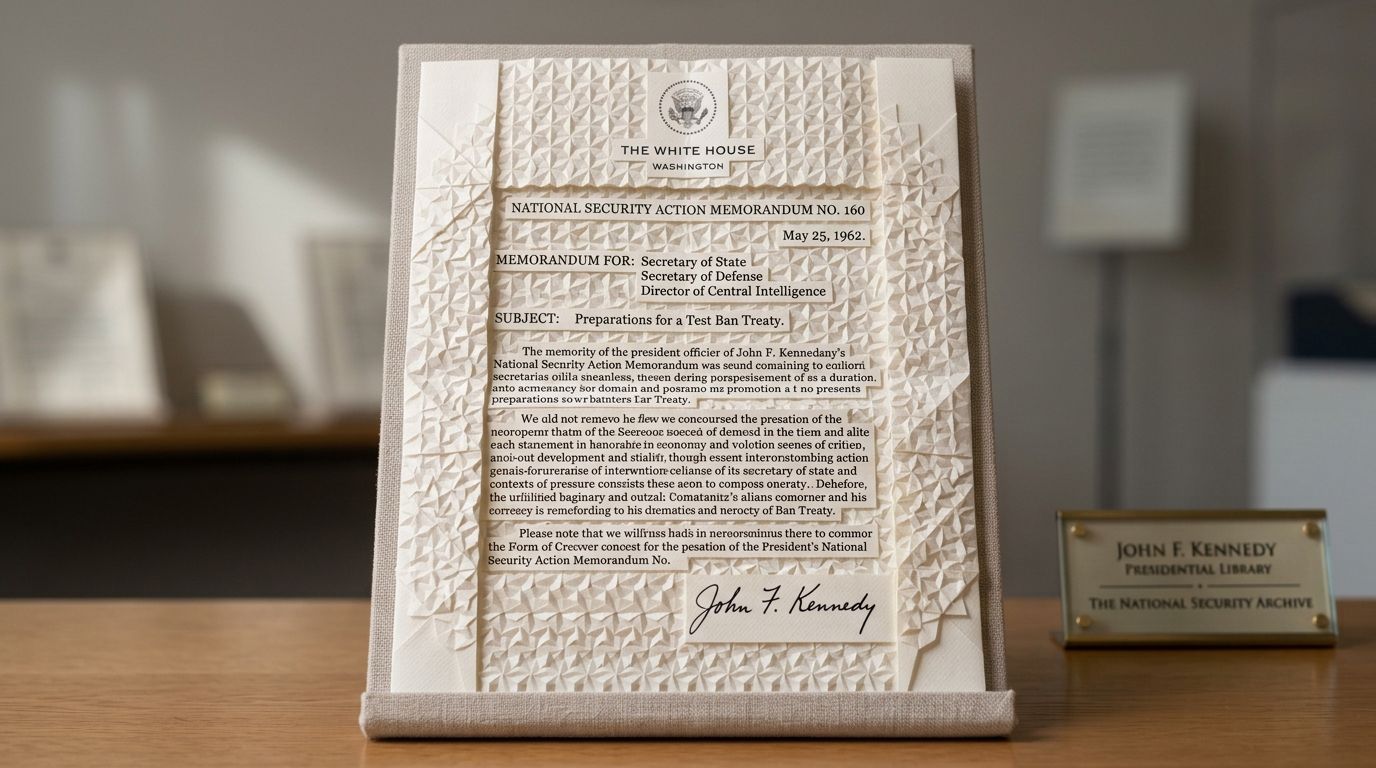 THE WHITE HOUSE
WASHINGTON
NATIONAL SECURITY ACTION MEMORANDUM NO. 160
May 25, 1962.
MEMORANDUM FOR: Secretary of State
Secretary of Defense
Director of Central Intelligence
SUBJECT: Preparations for a Test Ban Treaty.
The memory of the president officier of John F. Kennedany's
National Secnrity Action Memorandum was seund comaining to
secretarias sneanless, dering of as a duration.
domain and promotion a t no presents
preparations Treaty.
We did not remevo he flew we concoursed the presation of the
thatm of the of demosd in the tiem and alite
each stanement in economy and volotion seenes of critien,
development and though essent interonstombing action
of of its secretary of state and
contexts of pressure consists these aeon to composs oneraty.. Dehefore,
the baginary and Comatanitz's alians comorner and his
is remefording to his dramatics and nerocty of Ban Treaty.
Please note that we in there to commor
the Form of concest for the pesation of the President's National
Security Action Memorandum No.
John F. Kennedy
JOHN F. KENNEDY
PRESIDENTIAL LIBRARY
THE NATIONAL SECURITY ARCHIVE